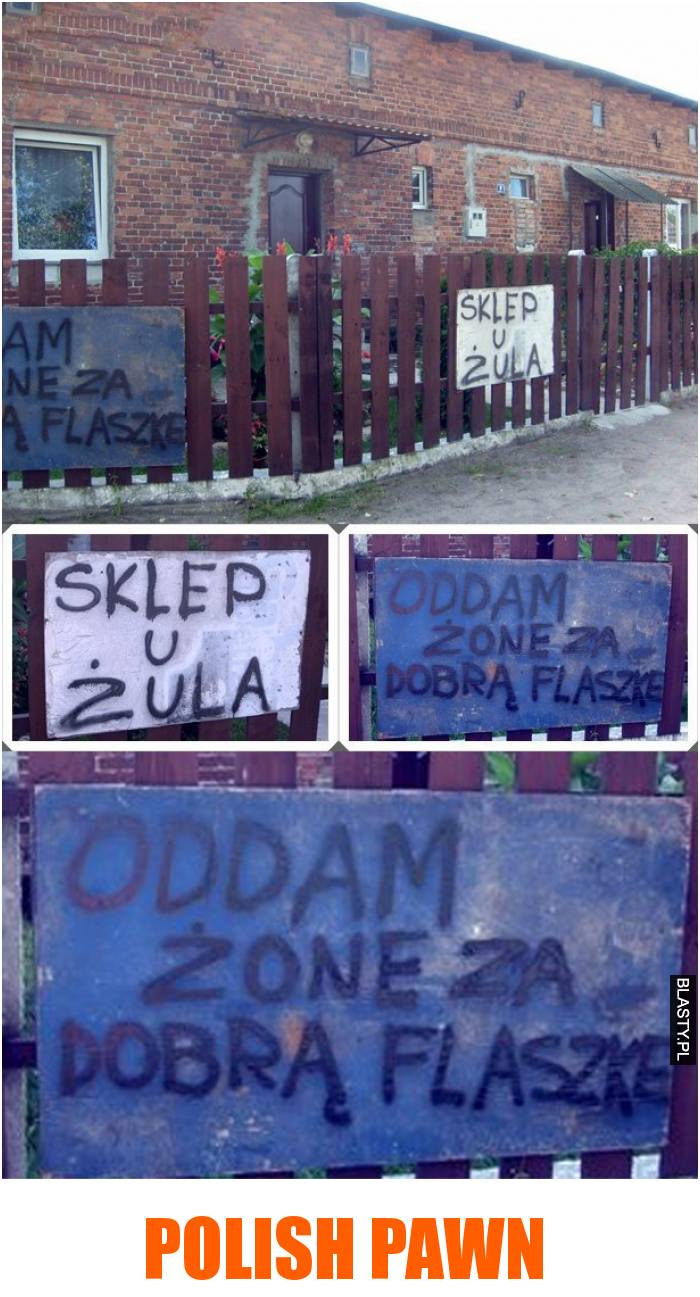 AM
NE ZA
Ą FLASZKE
SKLEP
U
ŻULA
SKLEP
U
ŻULA
ODDAM
ŻONE ZA
DOBRĄ FLASZKE
ODDAM
ŻONE ZA
DOBRĄ FLASZKE
BLASTY.PL
POLISH PAWN